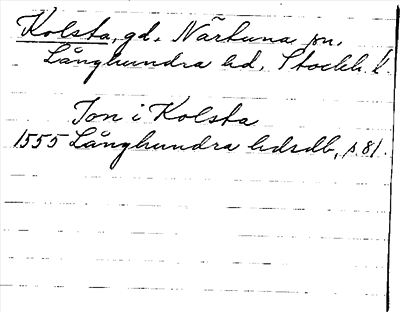 Kolsta, gd, Närtuna sn,
Långhundra hd, Stockh. l.
Jon i Kolsta
1555 Långhundra hdsdb, s. 81.